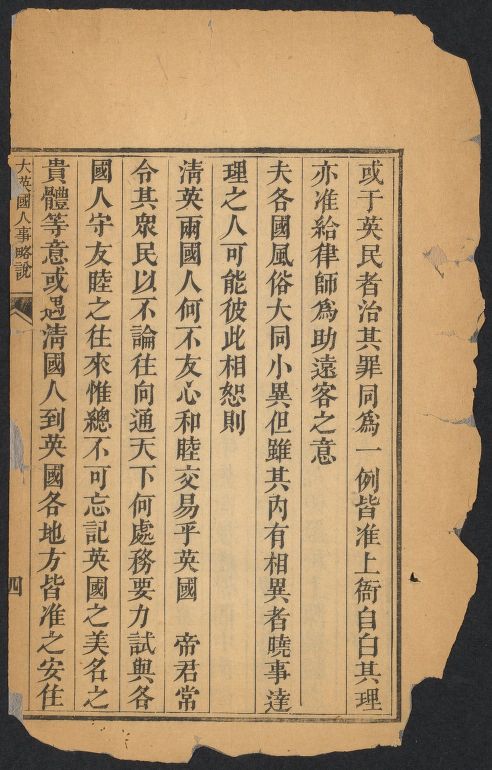 或于英民者治其罪同爲一例皆准上衙自白其理
亦准給律師爲助遠客之意
夫各國風俗大同小異但雖其內有相異者曉事達
理之人可能彼此相恕則
淸英兩國人何不友心和睦交易乎英國　帝君常
令其眾民以不論往向通天下何處務要力試與各
國人守友睦之往來惟總不可忘記英國之美名之
貴體等意或遇淸國人到英國各地方皆准之安住
大英國人事略說
四